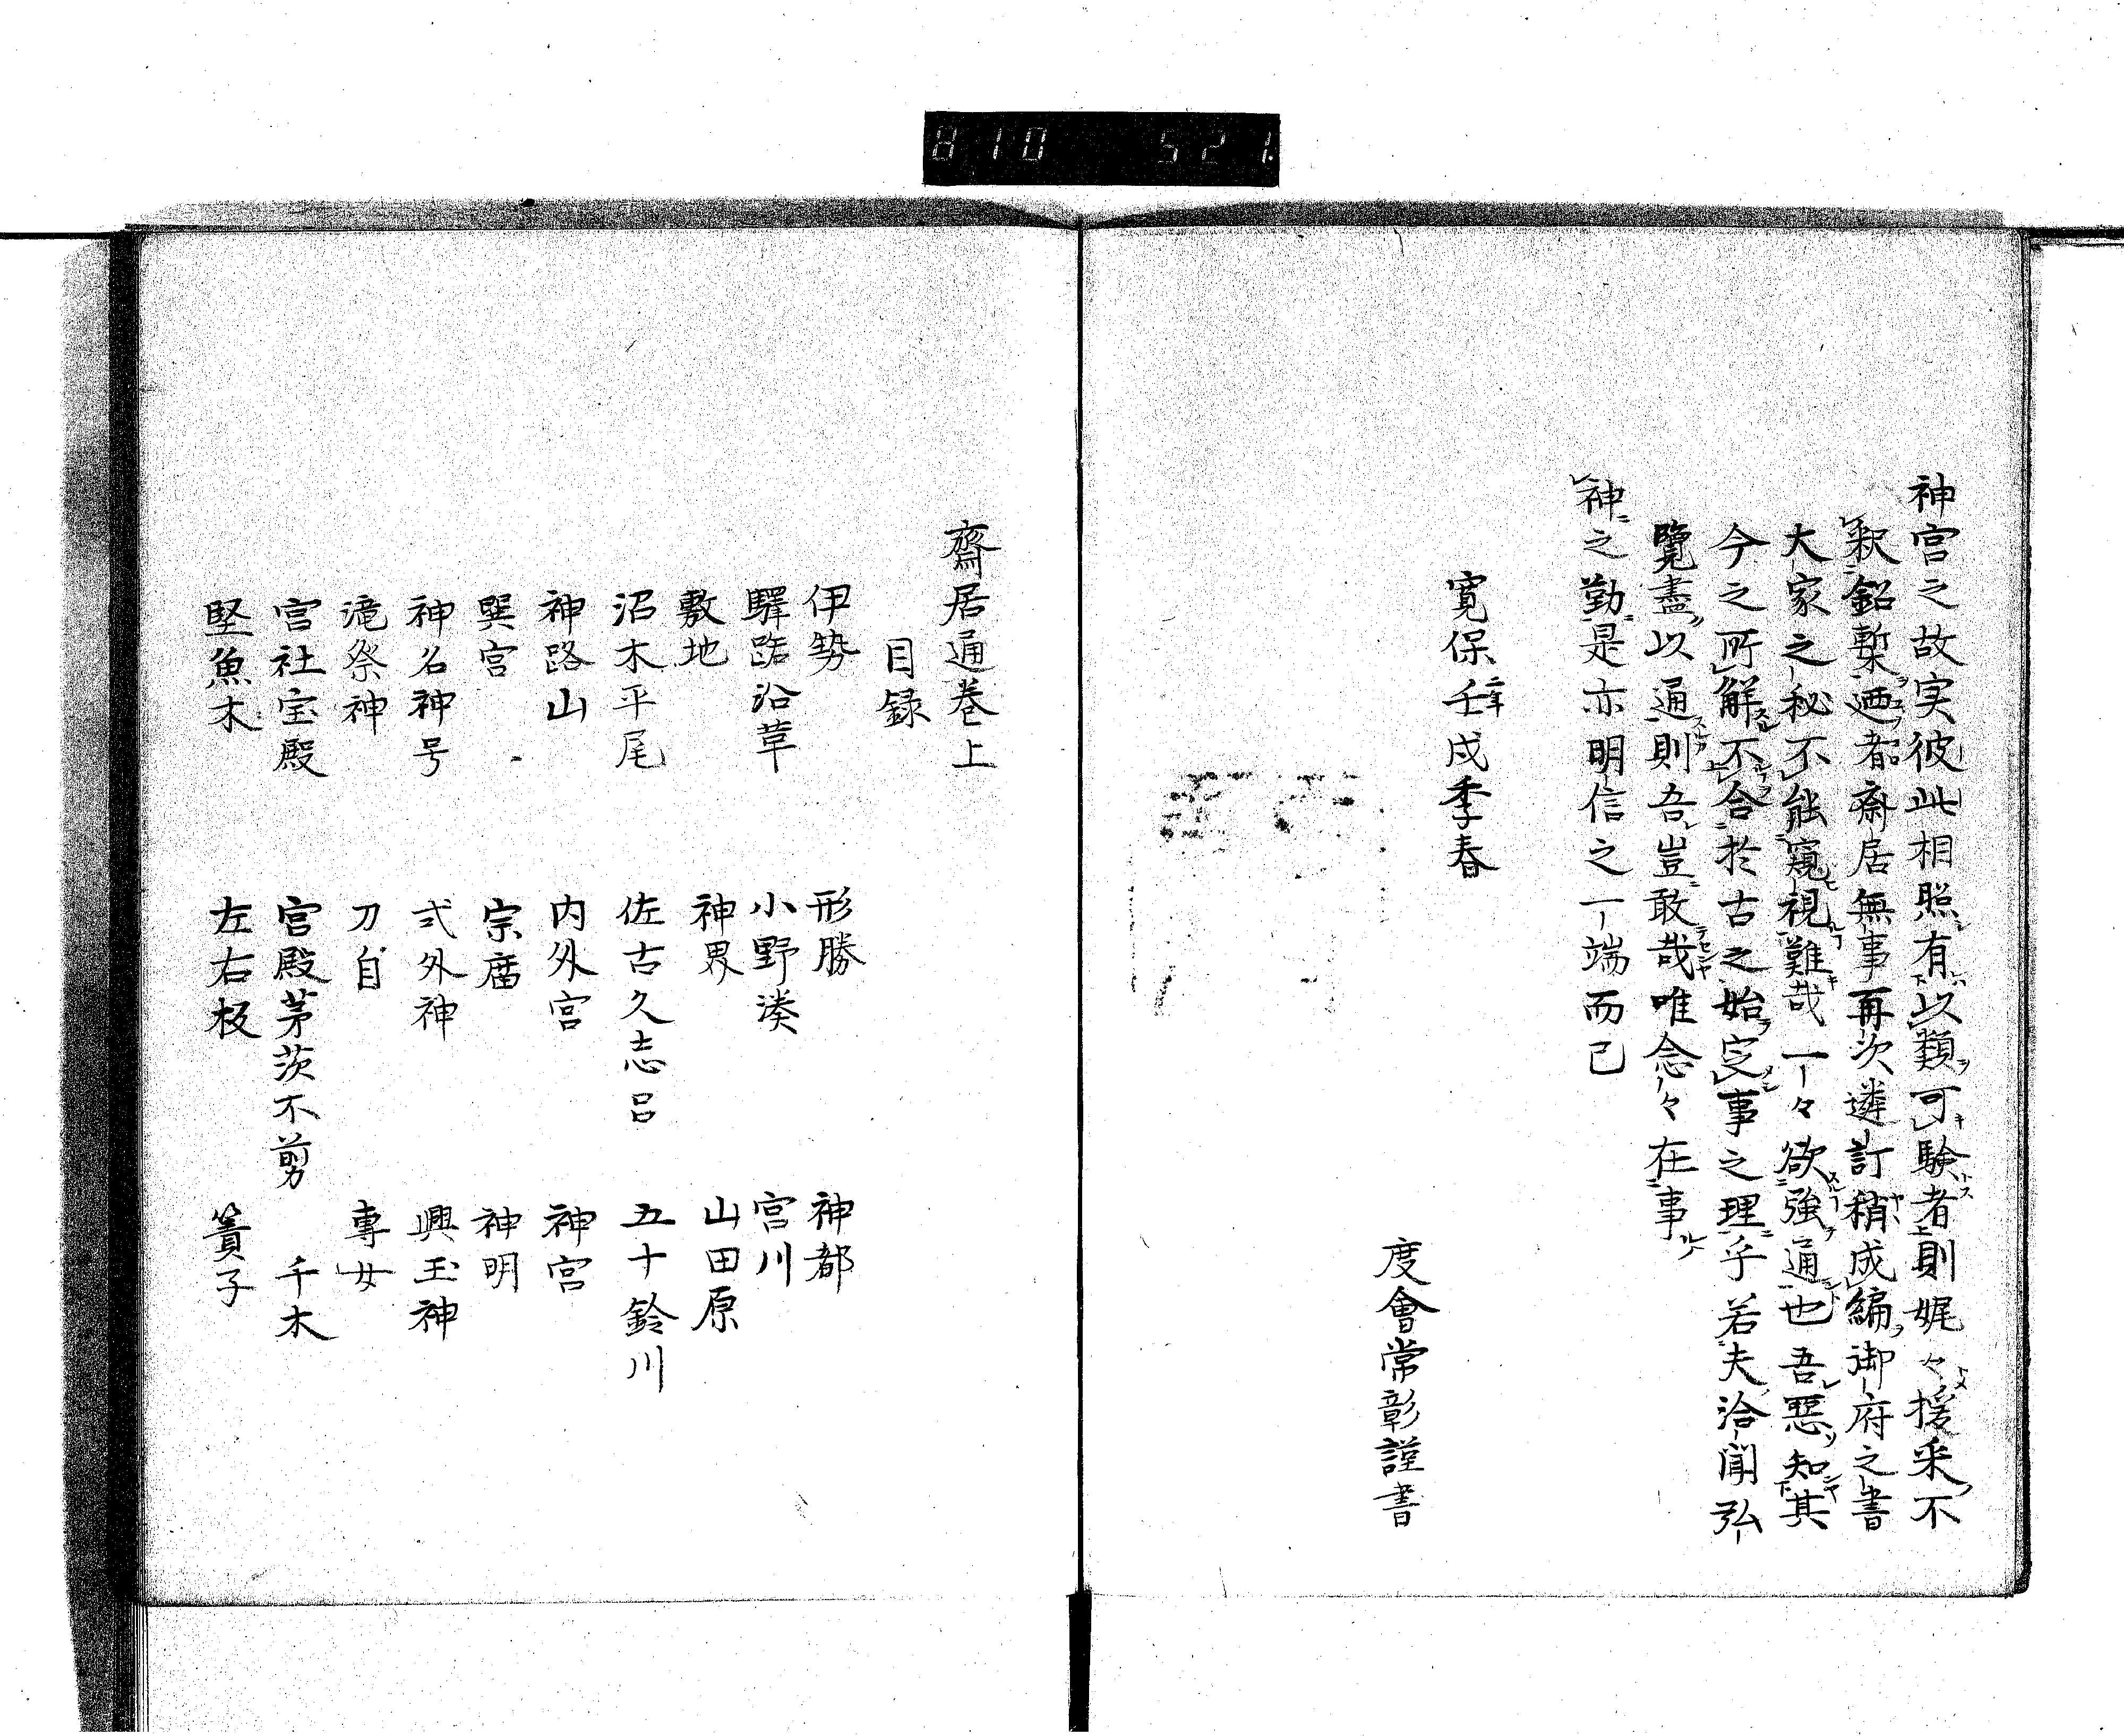 810 521.
神宮之故実彼此相照有以類可験者則娓々援采不
釈鉛槧迺者斎居無事再次遴訂稍成編御府之書
大家之秘不能窺視難哉一々欲強通也吾惡知其
今之所解不合於古之始定事之理乎若夫洽聞弘
覽盡以通則吾豈敢哉唯念々在事
神之勤是亦明信之一端而已
寛保二年壬戌季春
度會常彰謹書
齋居通巻上
目録
伊勢 形勝 神都
驛路沿革 小野湊 宮川
敷地 神界 山田原
沼木平尾 佐古久志呂 五十鈴川
神路山 内外宮 神宮
巽宮 宗廟 神明
神名神号 式外神 興玉神
滝祭神 刀自 専女
宮社宝殿 宮殿茅茨不剪 千木
堅魚木 左右板 簀子